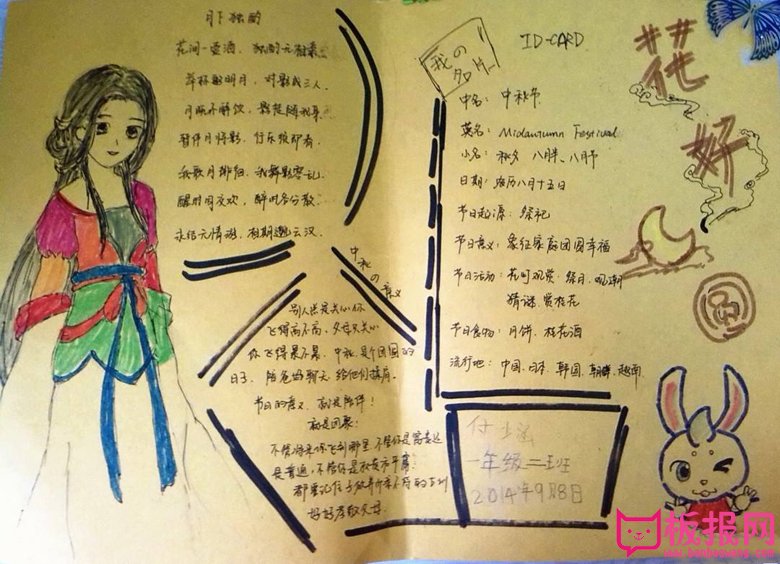 月下独酌
花间一壶酒，独酌无相亲。
举杯邀明月，对影成三人。
月既不解饮，影徒随我身。
暂伴月将影，行乐须及春。
我歌月徘徊，我舞影零乱。
醒时同交欢，醉时各分散。
永结无情游，相期邈云汉。
中秋の意义
别人总是关心你
飞得高不高，父母只关心
你飞得累不累，中秋是个团圆的
日子，陪爸妈聊天，给他们揉肩。
节日的意义，就是陪伴！
就是回家！
不管将来你飞到哪里，不管你是富贵还
是普通，
都要
好好孝敬父母
我の名片
ID-CARD
中名：中秋节
英名：Midautumn Festival
小名：秋夕 八月半、八月节
日期：农历八月十五日
节日起源：祭祀
节日意义：象征家庭团圆幸福
节日活动：花灯观赏 祭月、观潮
猜谜、赏桂花
节日食物：月饼、桂花酒
流行地：中国、日本、韩国、朝鲜、越南
花好
圆
一年级二班
2014年9月8日
板报网